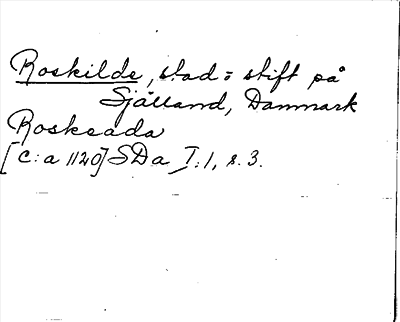 Roskilde, stad o stift på
Själland, Danmark
Roskeada
[c:a 1120] SDa I:1, s. 3.